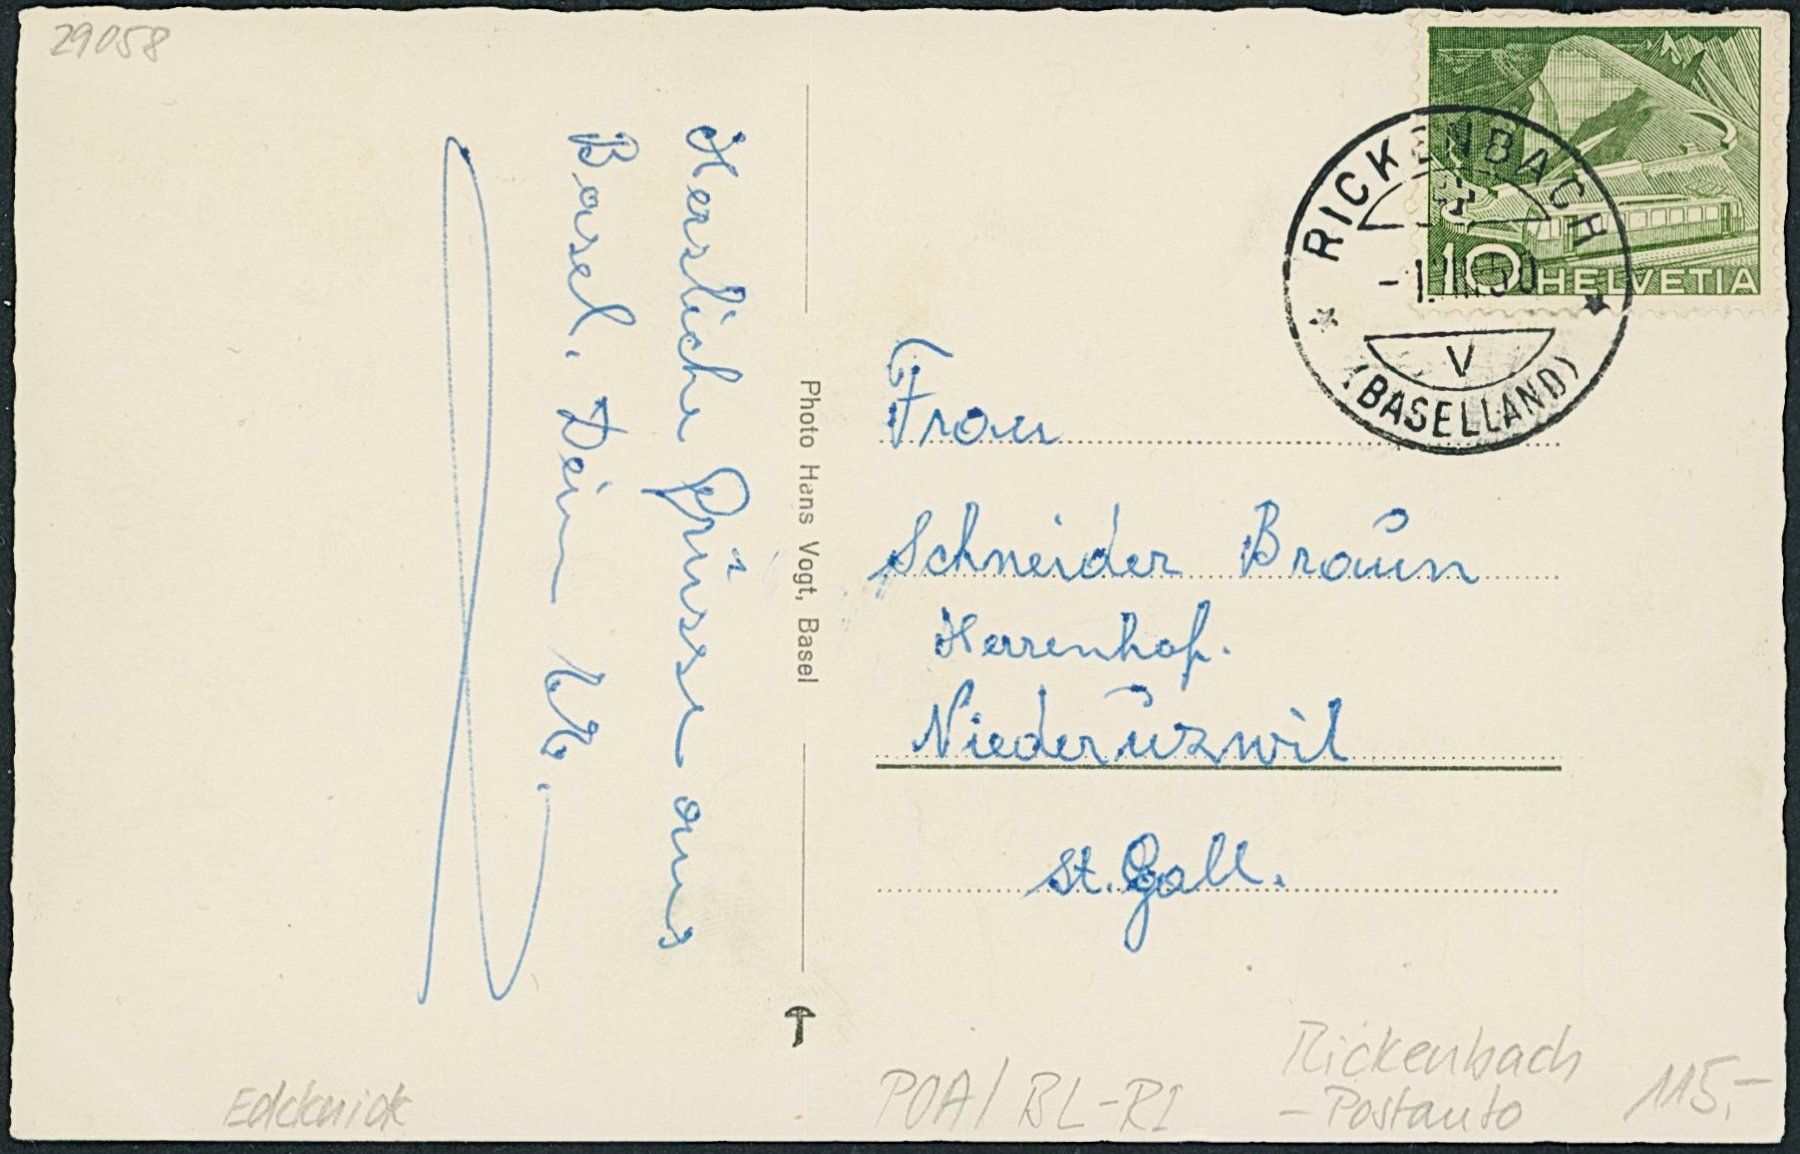 29058
Herzliche Grüsse aus
Basel. Dein
Photo Hans Vogt, Basel
10 HELVETIA
RICKENBACH
V
(BASELLAND)
Frau
Schneider Braun
Herrenhof.
Niederuzwil
St. Gall.
Eckknick
POA/ BL-RI
Rickenbach
- Postauto
115.-